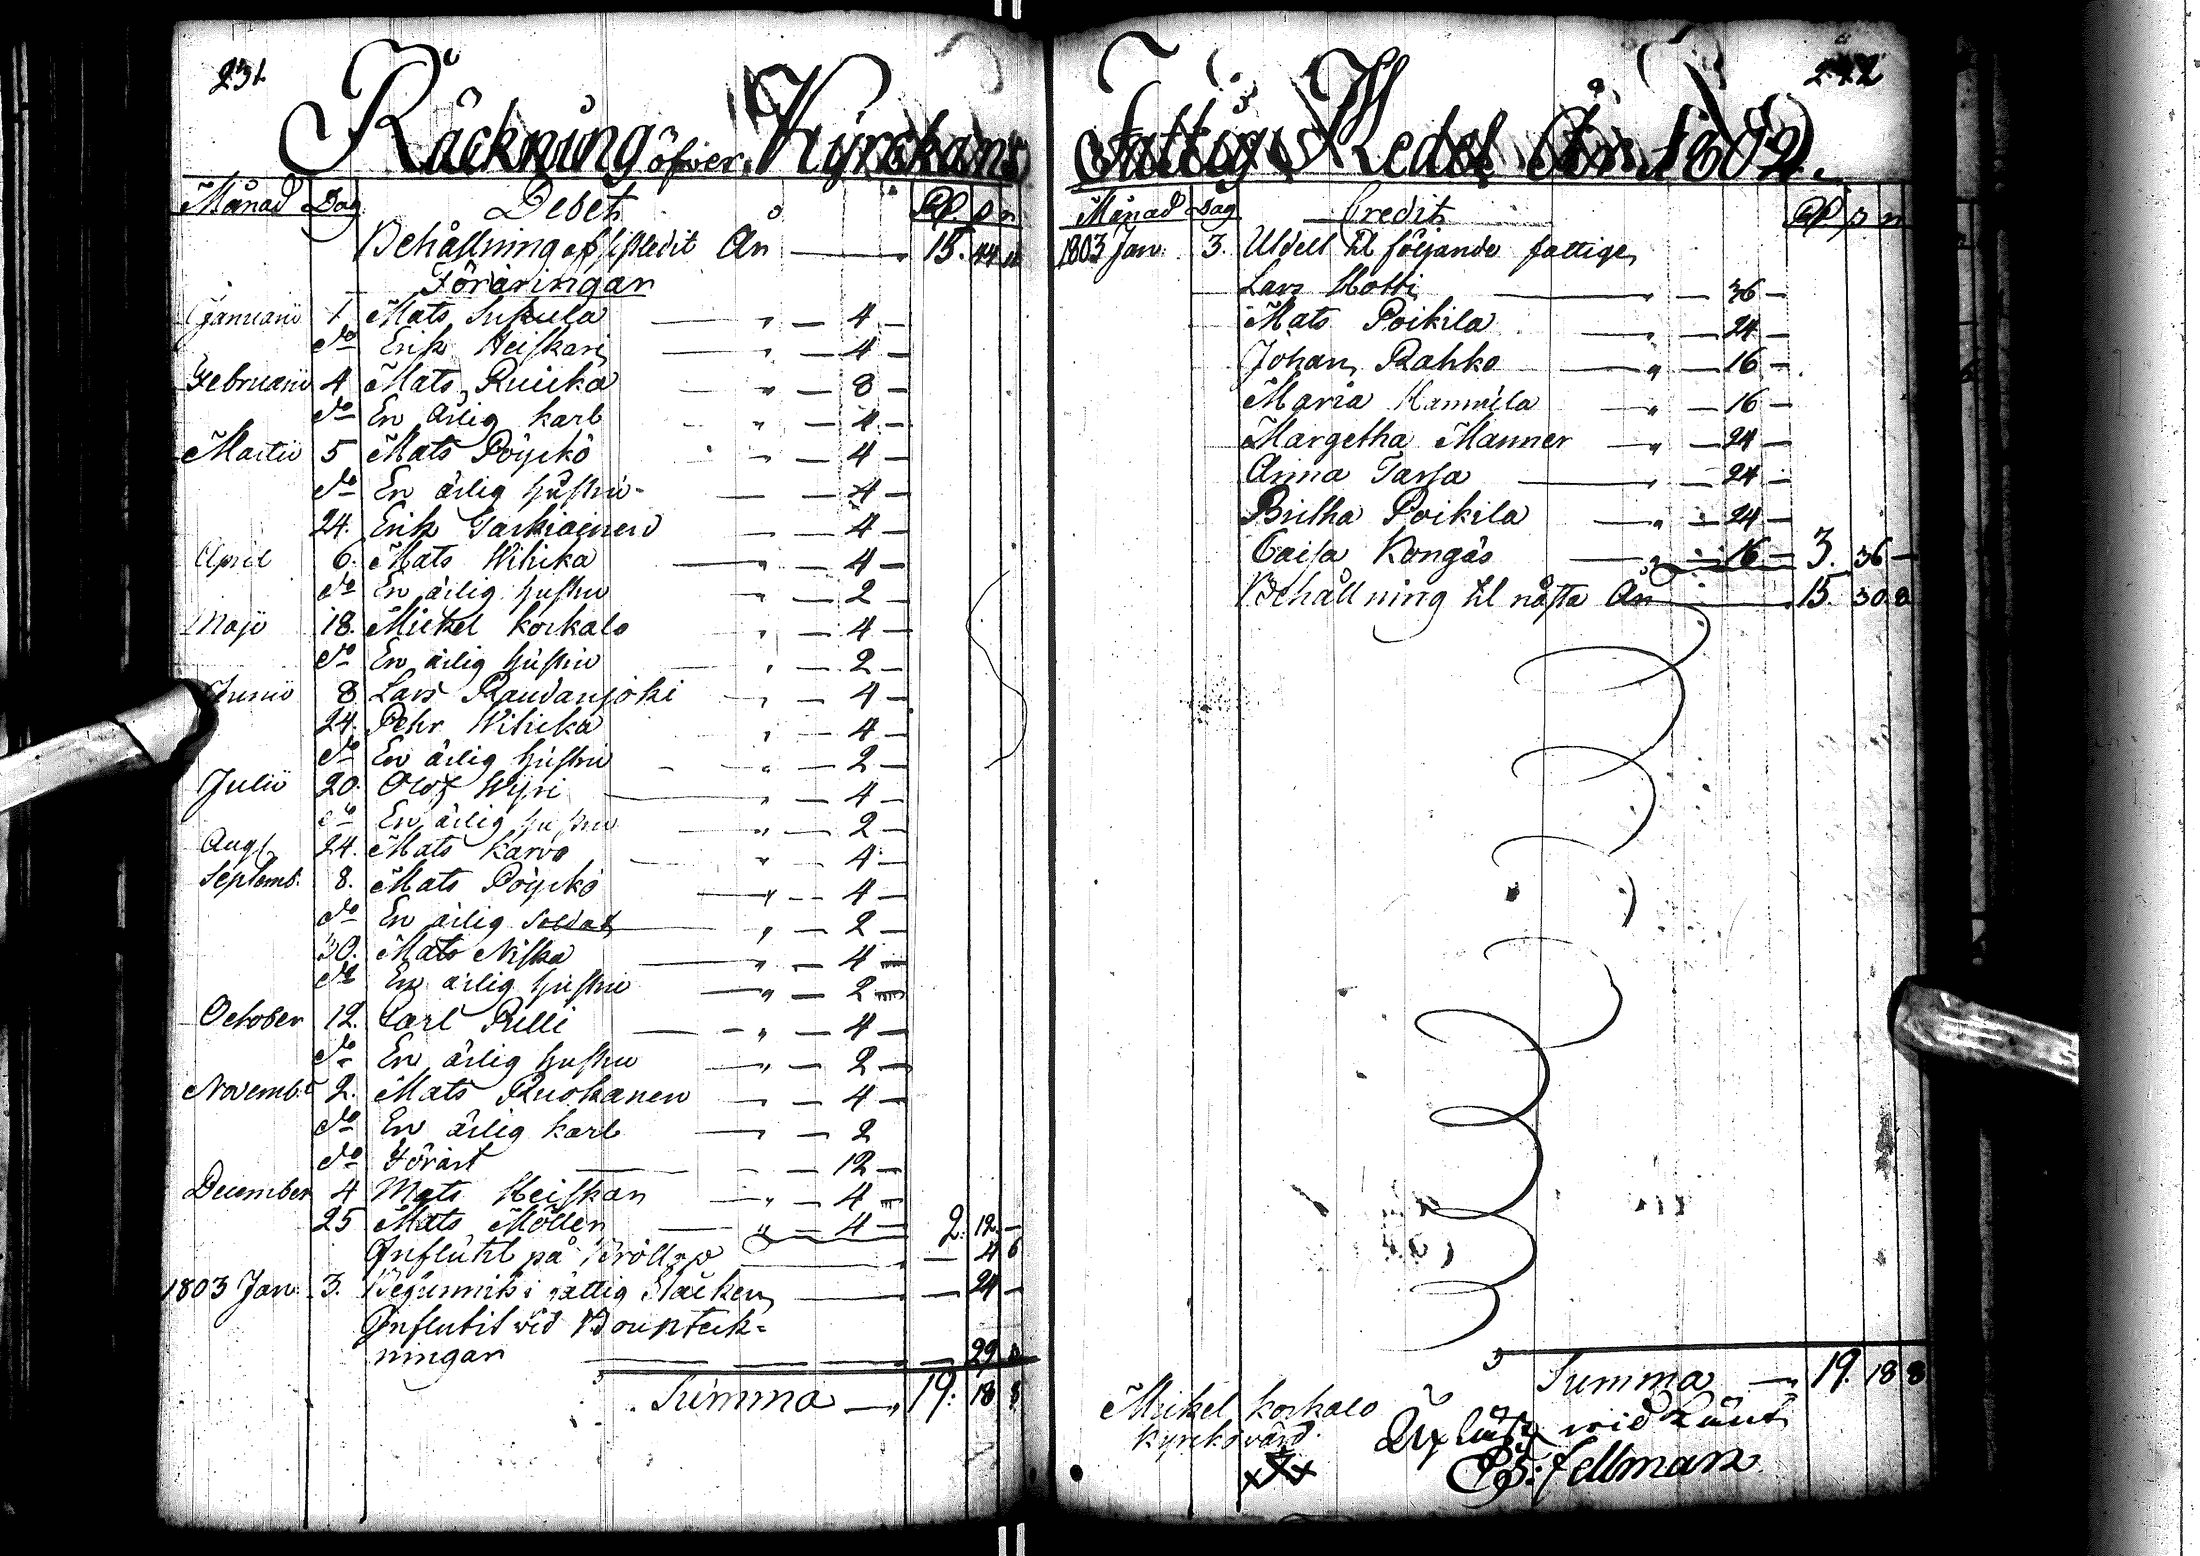 231
Räckning öfver Kyrckans
Månad Dag Debet RD. s rn
Behållning af sistledit År 15. 44
Föräringar
Januarii 1 Mats Sukula 4
do Erik Heiskari 4
Februarii 4 Mats Ruicka 8
do En ärlig karl 4
Martii 5 Mats Pöyckö 4
do En ärlig hustru 4
24. Erik Tarkiainen 4
April 6. Mats Wihika 4
do En ärlig hustru 2
Maji 18. Mickel Korkalo 4
do En ärlig hustru 2
Junii 8 Lars Raudanjoki 4
24. Pehr Wihicka 4
do En ärlig hustru 2
Julii 20. Olof Wyri 4
do En ärlig hustru 2
Augs. 24. Mats Karvo 4
Septemb. 8. Mats Pöyckö 4
do En ärlig Soldat 2
30. Mats Niska 4
do En ärlig hustru 2
October 12. Carl Pelli 4
do En ärlig hustru 2
Novemb. 2. Mats Ruokanen 4
do En ärlig karl 2
do Förärt 12
December 4 Mats Heiskari 4
25 Mats Möller 4 2. 12
Influtit på Bröllop 4 6
1803 Jan. 3. i fattig Stäcken 24
Influtit vid Boupteck-
ningar 29
Summa 19. 18 8
242
Fattig Medel År 1802.
Månad Dag Credit RD. s rn
1803 Jan. 3. Utdelt til följande fattige
Lars Hotti 36
Mats Poikila 24
Johan Rahko 16
Maria Hannula 16
Margetha Manner 24
Anna Tarsa 24
Britha Poikila 24
Caisa Kongäs 16 3. 36
Behållning til nästa År 15. 30 8
Summa 19. 18 8
Mickel Korkalo
Kyrckovärd.
Uplüst vidkänt
Es: Fellman